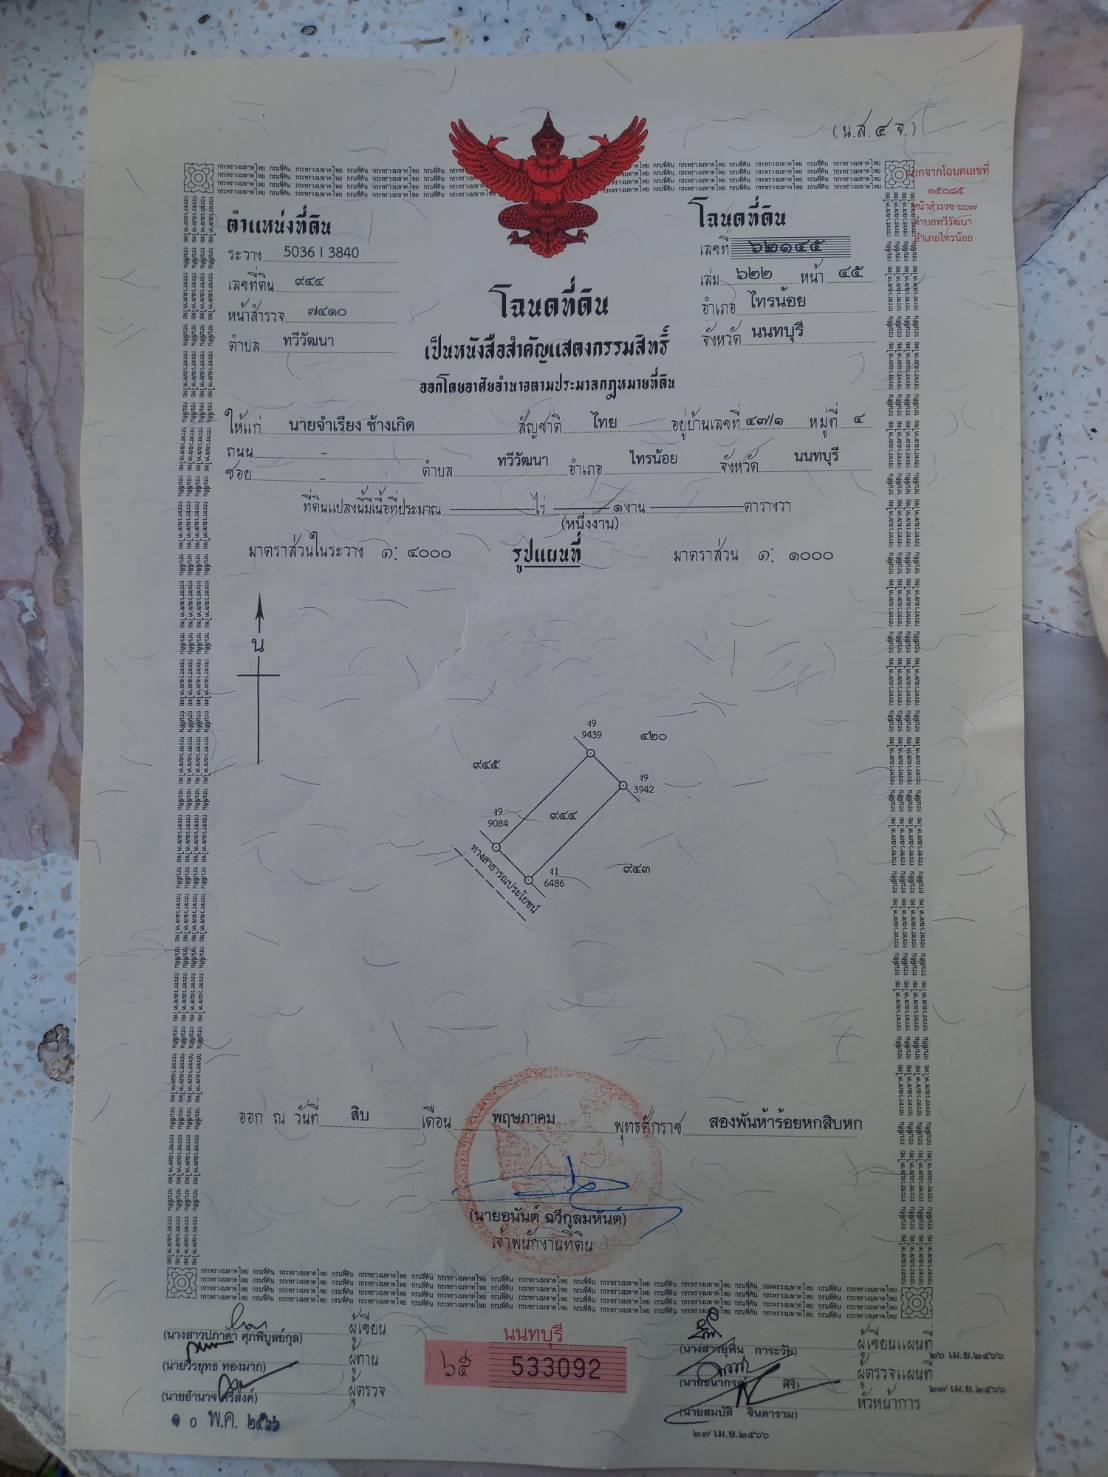 (น.ส.๔ จ.)
ออกจากโฉนดเลขที่
๑๕๐๘๕
หน้าสำรวจ ๖๖๗
ตำบลทวีวัฒนา
อำเภอไทรน้อย
ตำแหน่งที่ดิน
ระวาง 5036 I 3840
เลขที่ดิน ๙๔๔
หน้าสำรวจ ๗๔๑๐
ตำบล ทวีวัฒนา
โฉนดที่ดิน
เลขที่ ๖๒๑๔๕
เล่ม ๖๒๒ หน้า ๔๕
อำเภอ ไทรน้อย
จังหวัด นนทบุรี
โฉนดที่ดิน
เป็นหนังสือสำคัญแสดงกรรมสิทธิ์
ออกโดยอาศัยอำนาจตามประมวลกฎหมายที่ดิน
ให้แก่ นายจำเรียง ช้างเกิด สัญชาติ ไทย อยู่บ้านเลขที่ ๔๗/๑ หมู่ที่ ๔
ถนน -
ซอย - ตำบล ทวีวัฒนา อำเภอ ไทรน้อย จังหวัด นนทบุรี
ที่ดินแปลงนี้มีเนื้อที่ประมาณ ไร่ ๑ งาน ตารางวา
(หนึ่งงาน)
มาตราส่วนในระวาง ๑: ๔๐๐๐ รูปแผนที่ มาตราส่วน ๑: ๑๐๐๐
น
ง9
9439
๔๒๐
๙๔๕
ง9
3942
ง9
9084
๙๔๔
๙๔๓
ง1
6486
ทางสาธารณประโยชน์
ออก ณ วันที่ สิบ เดือน พฤษภาคม พุทธศักราช สองพันห้าร้อยหกสิบหก
(นายอนันต์ ฉวีกุลมหันต์)
เจ้าพนักงานที่ดิน
(นางสาวปภาดา ศุภพิบูลย์กุล) ผู้เขียน
(นายวีรยุทธ ทองมาก) ผู้ทาน
(นายอำนาจ ศรีสงค์) ผู้ตรวจ
๑๐ พ.ค. ๒๕๖๖
นนทบุรี
๖๕ 533092
(นางสายพิน การะวัน) ผู้เขียนแผนที่ ๒๖ เม.ย.๒๕๖๖
ผู้ตรวจแผนที่ ๒๗ เม.ย.๒๕๖๖
(นายสมบัติ จินดาราม) หัวหน้าการ
๒๗ เม.ย.๒๕๖๖